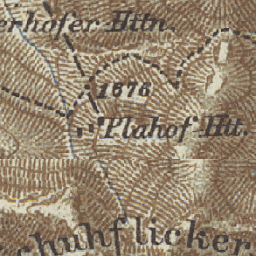 erhofer Httn.
1676
Plahof Htt.
chuhflicker